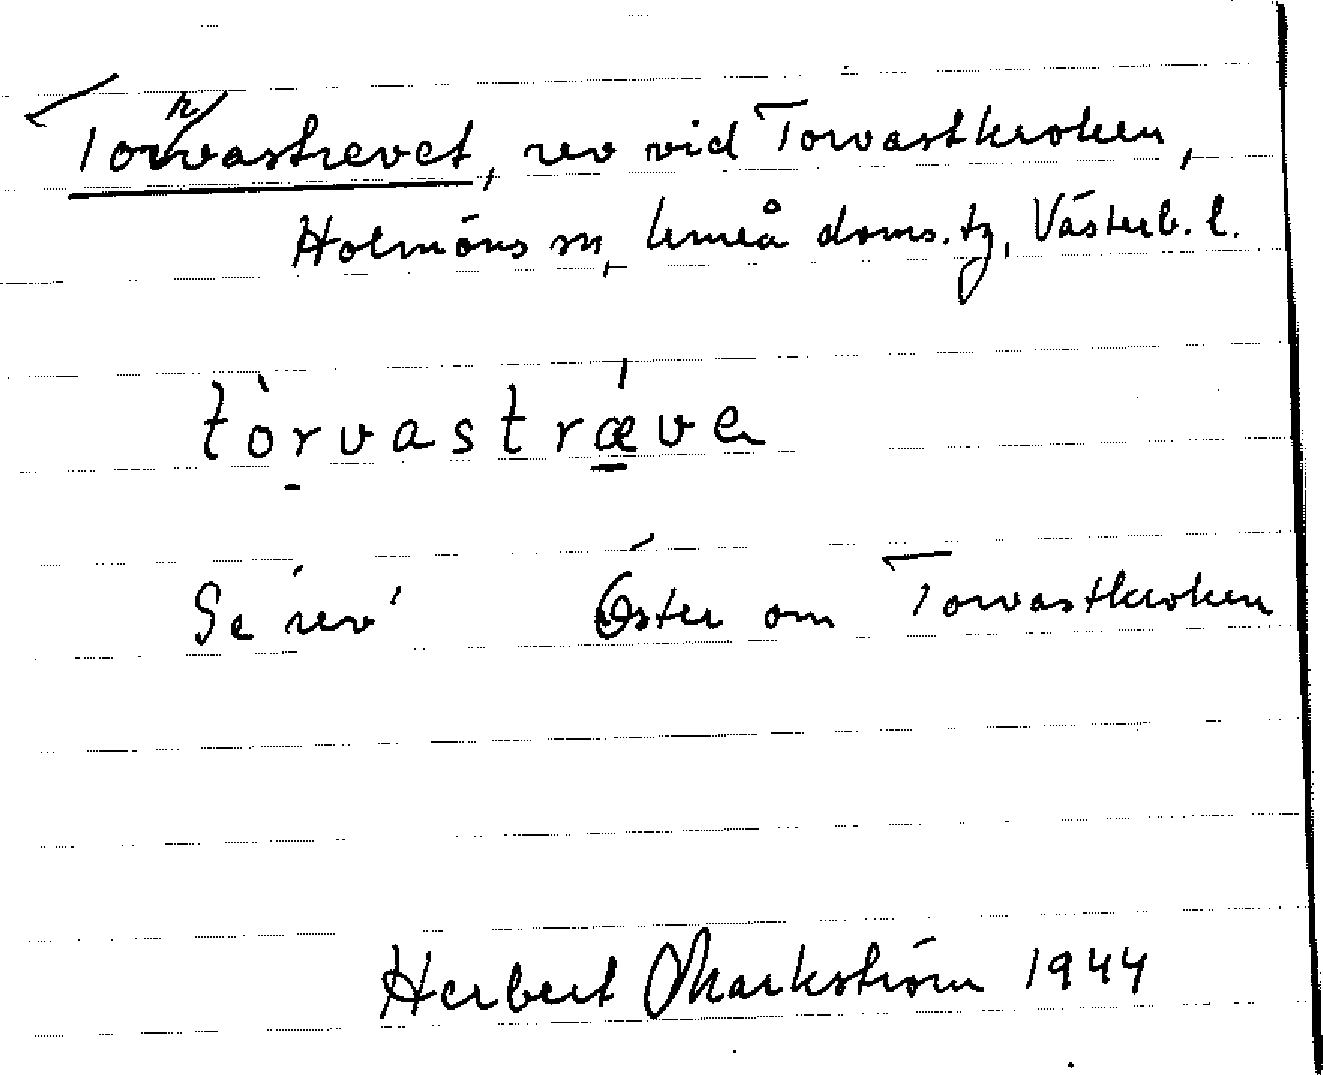 Torvastrevet, rev vid Torvastkroken,
Holmöns sn, Umeå doms. tg, Västerb. l.
tòrvastrǽ̱ve
Se 'rev' Öster om Torvastkroken
Herbert Markström 1944